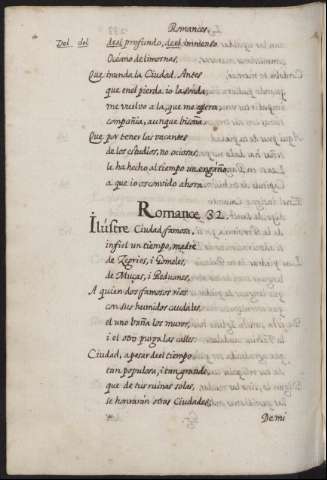 Romances,
Del del deel profundo, deel imnienso
Océano de limosnas,
Que inunda la Ciudad. Antes
que en el pierda io la senda,
me vuelvo a la, que me espera,
compañia, aunque bisoña
Que por tener las vacantes
de los estudios, no ociosas,
le ha hecho al tiempo un engaño,
a que io os convido ahora
Romance 32.
Ilústre Ciudad famosa,
infiel un tiempo, madre
de Zegries, i Gomeles,
de Muças, i Reduanes,
A quien dos famosos rios
con sus humidos caudales,
el uno baña los muros,
i el otro purga las calles.
Ciudad, a pesar de el tiempo
tan populosa, i tan grande,
que de tus ruinas solas,
se honrarán otras Ciudades,
De mi